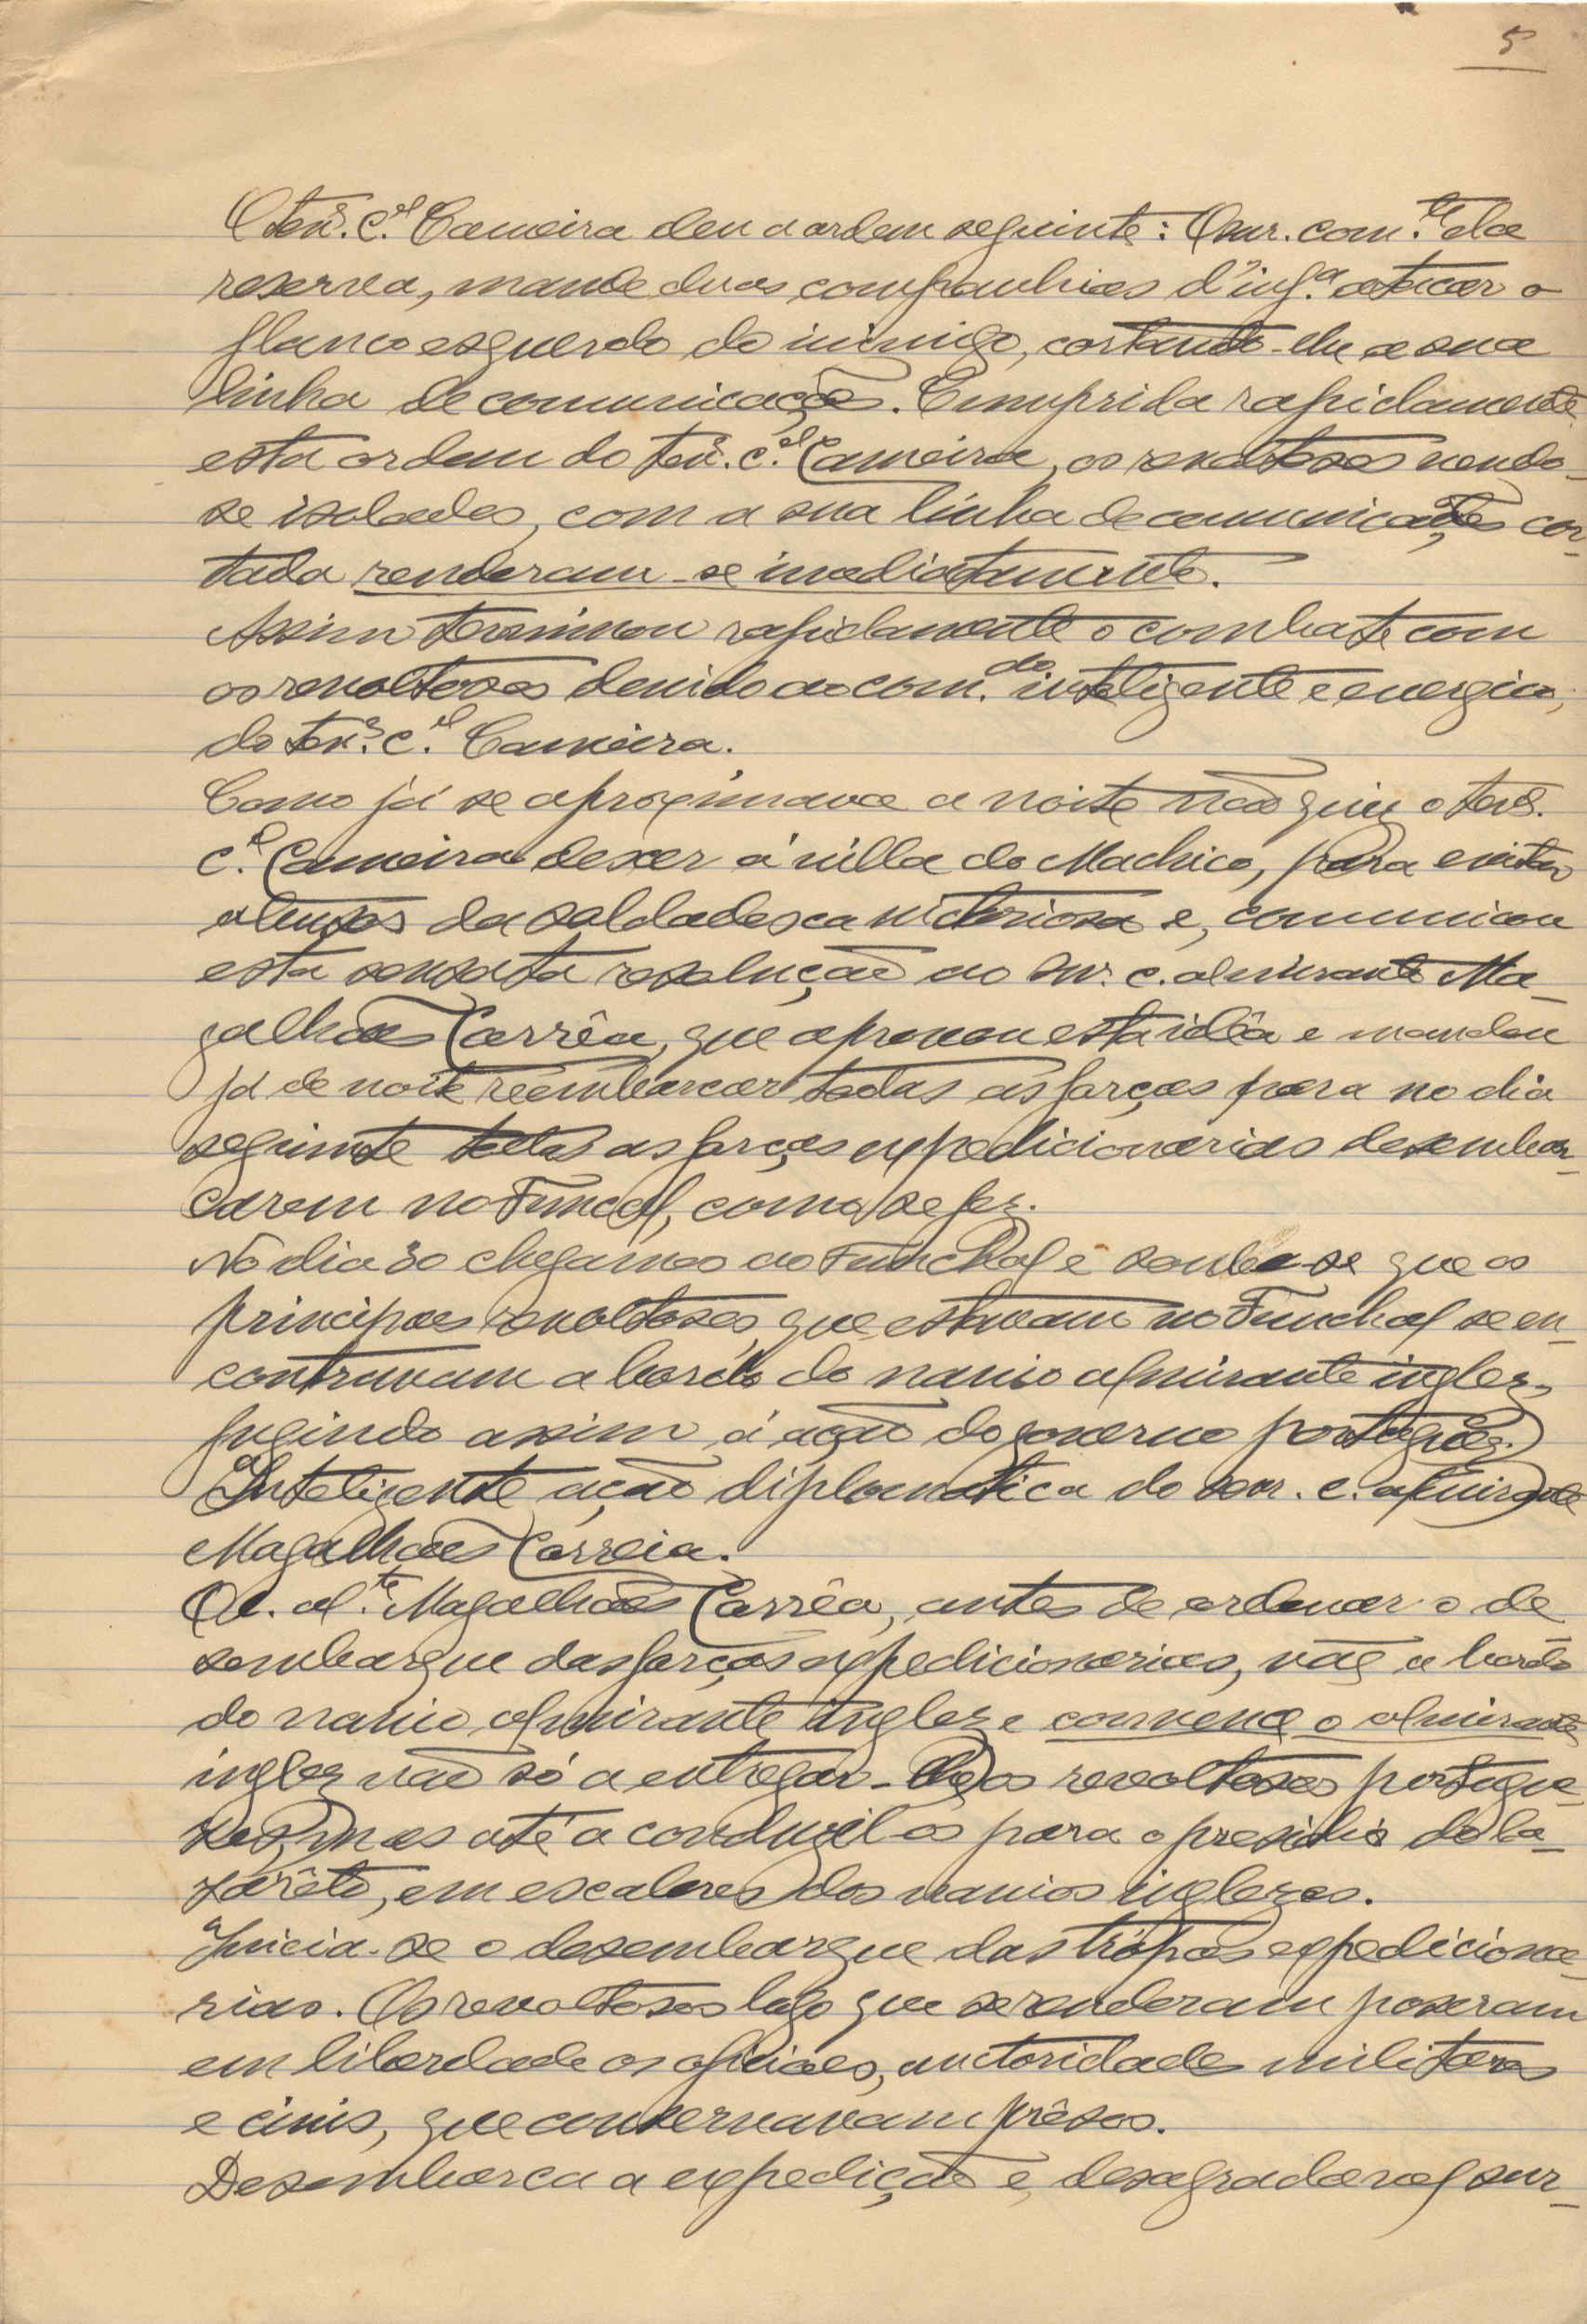 5
O ten.e c.el Cameira deu a ordem seguinte: O snr. com.te da
reserva, mande duas companhias d'inf.a atacar o
flanco esquerdo do inimigo, cortando-lhe a sua
linha de comunicação. Cumprida rapidamente
esta ordem do ten.e c.el Cameira, os revoltosos vendo-
se isolados, com a sua linha de comunicações cor-
tada renderam-se imediatamente.
Assim terminou rapidamente o combate com
os revoltosos devido ao com.do inteligente e energico,
do ten.e c.el Cameira.
Como já se aproximava a noite não quiz o ten.e
c.el Cameira descer á villa do Machico, para evitar
abusos da soldadesca victoriosa e, comunicou
esta sensata resolução ao snr. c. almirante Ma-
galhães Corrêa, que aprovou esta idêa e mandou
já de noite reembarcar todas as forças para no dia
seguinte todas as forças expedicionarias desembar-
carem no Funcal, como se fez.
No dia 30 chegamos ao Funchal e soube-se que os
principaes revoltosos, que estavam no Funchal se en-
contravam a bordo do navio almirante inglez,
fugindo assim á ação do governo português.
Inteligente ação diplomática do snr. c. almirante
Magalhães Correia.
O c. al.te Magalhães Corrêa, antes de ordenar o de
sembarque das forças expedicionarias, vae a bordo
do navio almirante inglez e convence o almirante
inglez não só a entregar-lhe os revoltosos portugue-
ses, mas até a conduzil-os para o presidio do la-
zarêto, em escaleres dos navios inglezes.
Inicia-se o desembarque das trópas expediciona-
rias. Os revoltosos logo que se renderam poseram
em liberdade os oficiaes, autoridades militares
e civis, que conservavam prêsos.
Desembarca a expedição e, desagradavel sur-